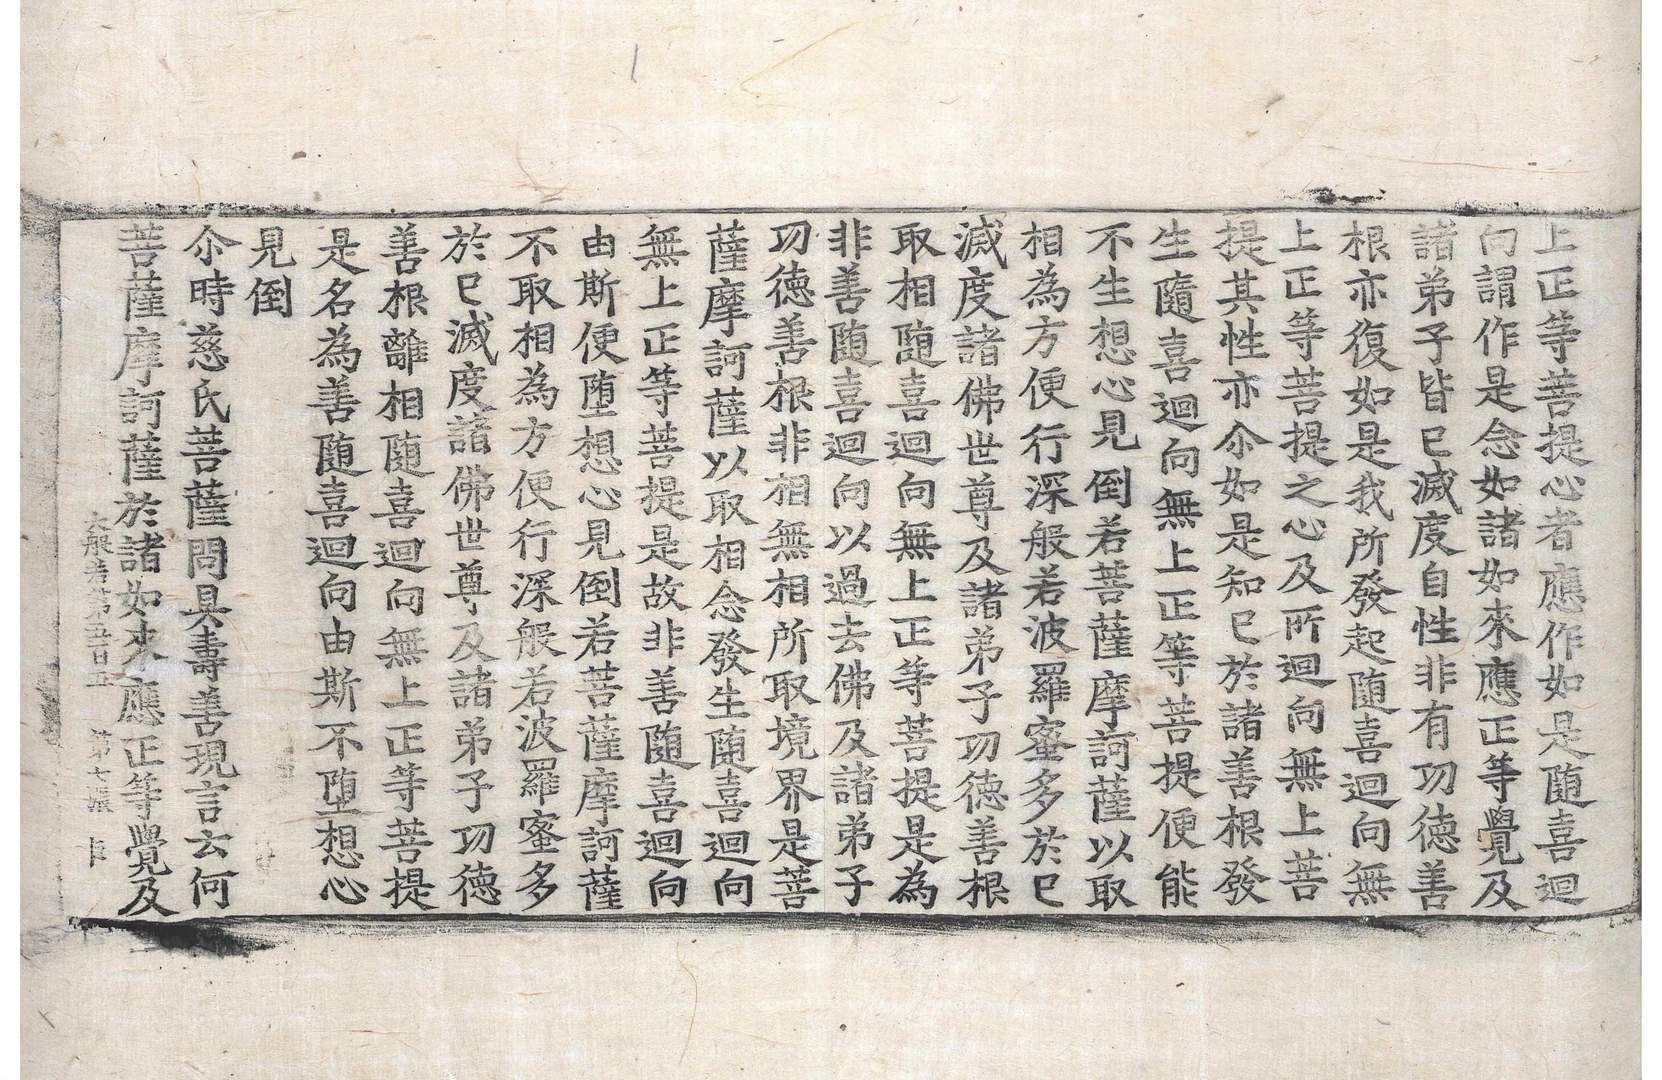 上正等菩提心者應作如是随喜迴
向謂作是念如諸如來應正等覺及
諸弟子皆已滅度自性非有功德善
根亦復如是我所發起随喜迴向無
上正等菩提之心及所迴向無上菩
提其性亦尒如是知已於諸善根發
生隨喜迴向無上正等菩提便能
不生想心見倒若菩薩摩訶薩以取
相為方便行深般若波羅蜜多於已
滅度諸佛世尊及諸弟子功德善根
取相随喜迴向無上正等菩提是為
非善随喜迴向以過去佛及諸弟子
功德善根非相無相所取境界是菩
薩摩訶薩以取相念發生随喜迴向
無上正等菩提是故非善随喜迴向
由斯便堕想心見倒若菩薩摩訶薩
不取相為方便行深般若波羅蜜多
於已滅度諸佛世尊及諸弟子功德
善根離相随喜迴向無上正等菩提
是名為善随喜迴向由斯不堕想心
見倒
尒時慈氏菩薩問具壽善現言云何
菩薩摩訶薩於諸如來應正等覺及
大般若第五百五 第七張